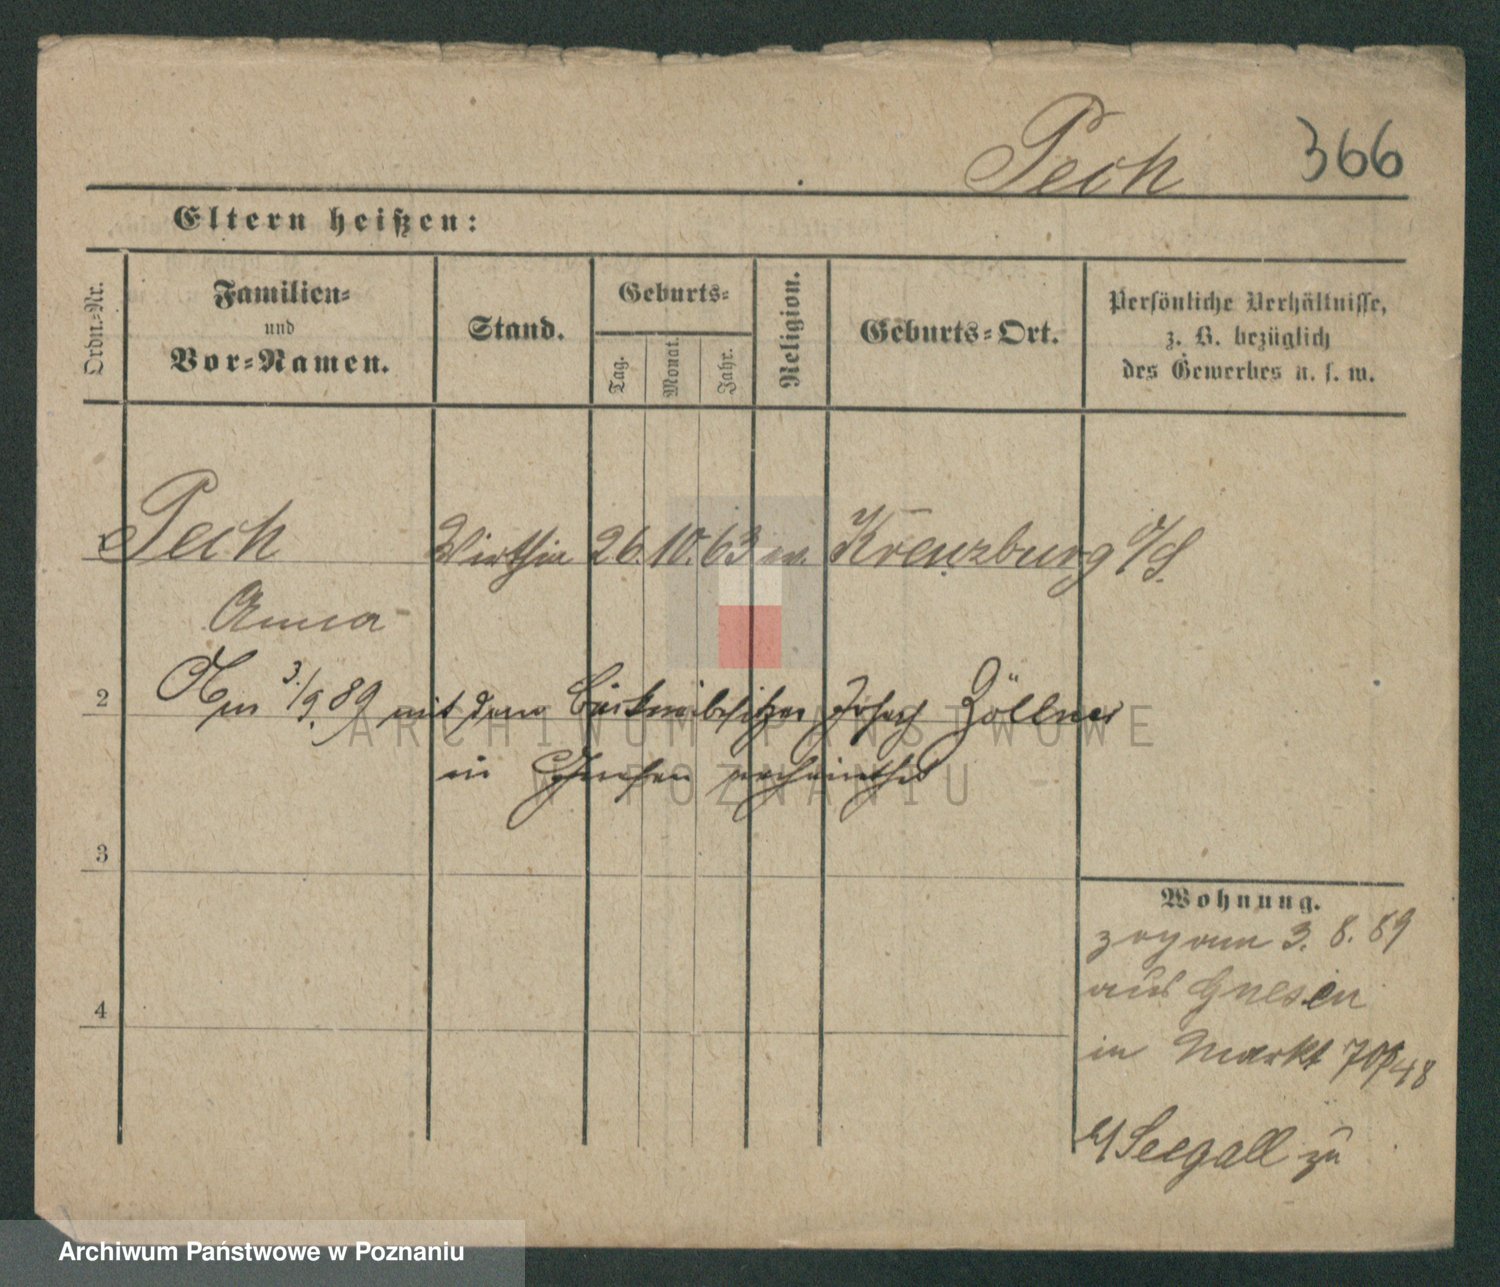 Pech 366
Eltern heißen:
Ordn.-Nr.
Familien-
und
Vor-Namen.
Stand.
Geburts-
Tag.
Monat.
Jahr.
Religion.
Geburts-Ort.
Persönliche Verhältnisse,
z. B. bezüglich
des Gewerbes u. s. w.
Pech Wirthin 26. 10. 63 ev. Kreuzburg O/S.
Anna
2 Am 3./9. 89 mit dem Josef Zöllner
in Gnesen
3
Wohnung.
zog am 3. 8. 89
aus Gnesen
in Markt
4
b/ Seegall zu
ARCHIWUM PAŃSTWOWE
W POZNANIU
Archiwum Państwowe w Poznaniu